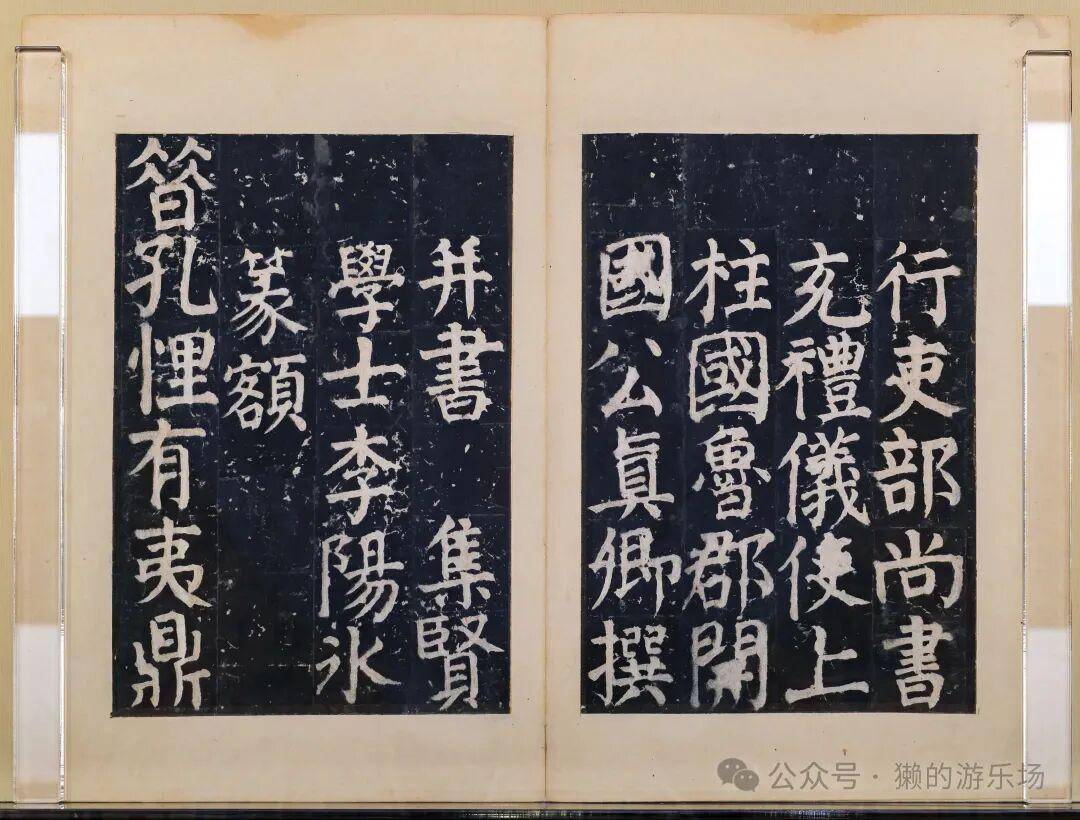 行吏部尚書
充禮儀使上
柱國魯郡開
國公眞卿撰
并書 集賢
學士李陽冰
篆額
昔孔悝有夷鼎
公众号·獭的游乐场